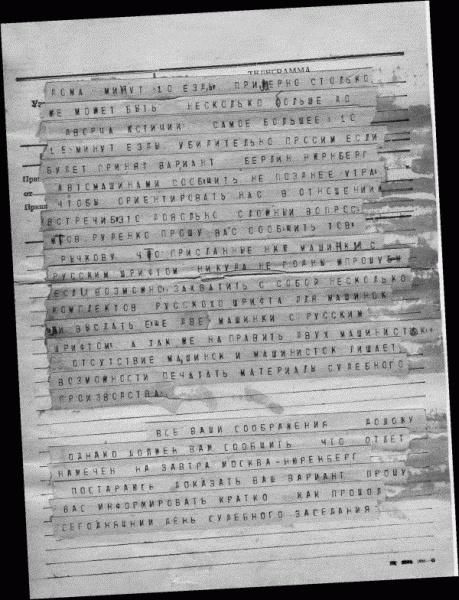 ТЕЛЕГРАММА
ДОМА МИНУТ 10 ЕЗДЫ ПРИМЕРНО СТОЛЬКО
ЖЕ МОЖЕТ БЫТЬ НЕСКОЛЬКО БОЛЬШЕ ДО
ДВОРЦА ЮСТИЦИИ САМОЕ БОЛЬШЕЕ 10
15 МИНУТ ЕЗДЫ УБЕДИТЕЛЬНО ПРОСИМ ЕСЛИ
БУДЕТ ПРИНЯТ ВАРИАНТ БЕРЛИН НЮРНБЕРГ
АВТОМАШИНАМИ СООБЩИТЬ НЕ ПОЗДНЕЕ УТРА
ЧТОБЫ ОРИЕНТИРОВАТЬ НАС В ОТНОШЕНИИ
ВСТРЕЧИ ЭТО ДОВОЛЬНО СЛОЖНЫЙ ВОПРОС
ТОВ РУДЕНКО ПРОШУ ВАС СООБЩИТЬ ТОВ
РЫЧКОВУ ЧТО ПРИСЛАННЫЕ НКЮ МАШИНКИ С
РУССКИМ ШРИФТОМ НИКУДА НЕ ГОДНЫ ПРОШУ
ЕСЛИ ВОЗМОЖНО ЗАХВАТИТЬ С СОБОЙ НЕСКОЛЬКО
КОМПЛЕКТОВ РУССКОГО ШРИФТА ДЛЯ МАШИНОК
ИЛИ ВЫСЛАТЬ ЕЩЕ ДВЕ МАШИНКИ С РУССКИМ
ШРИФТОМ А ТАК ЖЕ НАПРАВИТЬ ДВУХ МАШИНИСТОК
ОТСУТСТВИЕ МАШИНОК И МАШИНИСТОК ЛИШАЕТ
ВОЗМОЖНОСТИ ПЕЧАТАТЬ МАТЕРИАЛЫ СУДЕБНОГО
ПРОИЗВОДСТВА
ВСЕ ВАШИ СООБРАЖЕНИЯ ДОЛОЖУ
ОДНАКО ДОЛЖЕН ВАМ СООБЩИТЬ ЧТО ОТЛЕТ
НАМЕЧЕН НА ЗАВТРА МОСКВА-НЮРЕНБЕРГ
ПОСТАРАЮСЬ ДОКАЗАТЬ ВАШ ВАРИАНТ ПРОШУ
ВАС ИНФОРМИРОВАТЬ КРАТКО КАК ПРОШОЛ
СЕГОДНЯШНИЙ ДЕНЬ СУДЕБНОГО ЗАСЕДАНИЯ